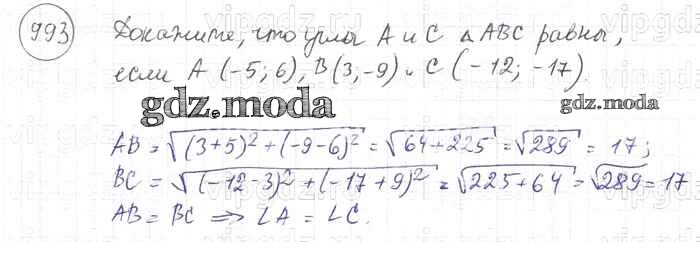 993 Докажите, что углы A и C △ ABC равны,
если A (-5; 6), B(3, -9) и C (-12; -17).
gdz.moda
gdz.moda
AB = √((3+5)² + (-9-6)²) = √(64+225) = √289 = 17;
BC = √((-12-3)² + (-17+9)²) = √(225+64) = √289 = 17
AB = BC ⇒ ∠A = ∠C.